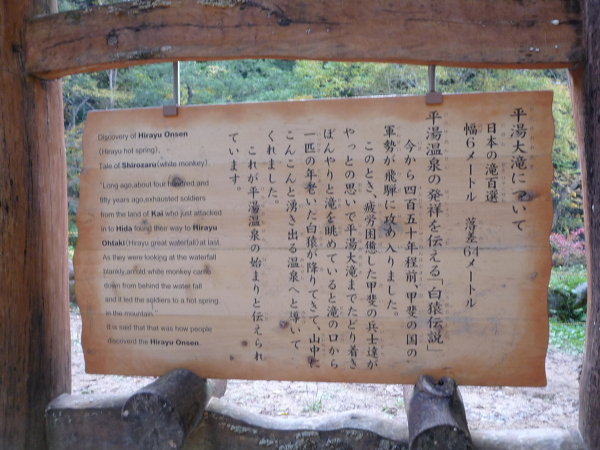 平湯大滝について
日本の滝百選
幅6メートル 落差64メートル
平湯温泉の発祥を伝える「白猿伝説」
今から四百五十年程前、甲斐の国の
軍勢が飛騨に攻め入りました。
このとき、疲労困憊した甲斐の兵士達が
やっとの思いで平湯大滝までたどり着き
ぼんやりと滝を眺めていると滝の口から
一匹の年老いた白猿が降りてきて、山中に
こんこんと湧き出る温泉へと導いて
くれました。
これが平湯温泉の始まりと伝えられ
ています。
Discovery of Hirayu Onsen
(Hirayu hot spring),
Tale of Shirozaru(white monkey)
"Long ago,about four hundred and
fifty years ago,exhausted soldiers
from the land of Kai who just attacked
in to Hida found their way to Hirayu
Ohtaki(Hirayu great waterfall)at last.
As they were looking at the waterfall
blankly,an old white monkey came
down from behind the water fall
and it led the soldiers to a hot spring
in the mountain."
It is said that that was how people
discoverd the Hirayu Onsen.